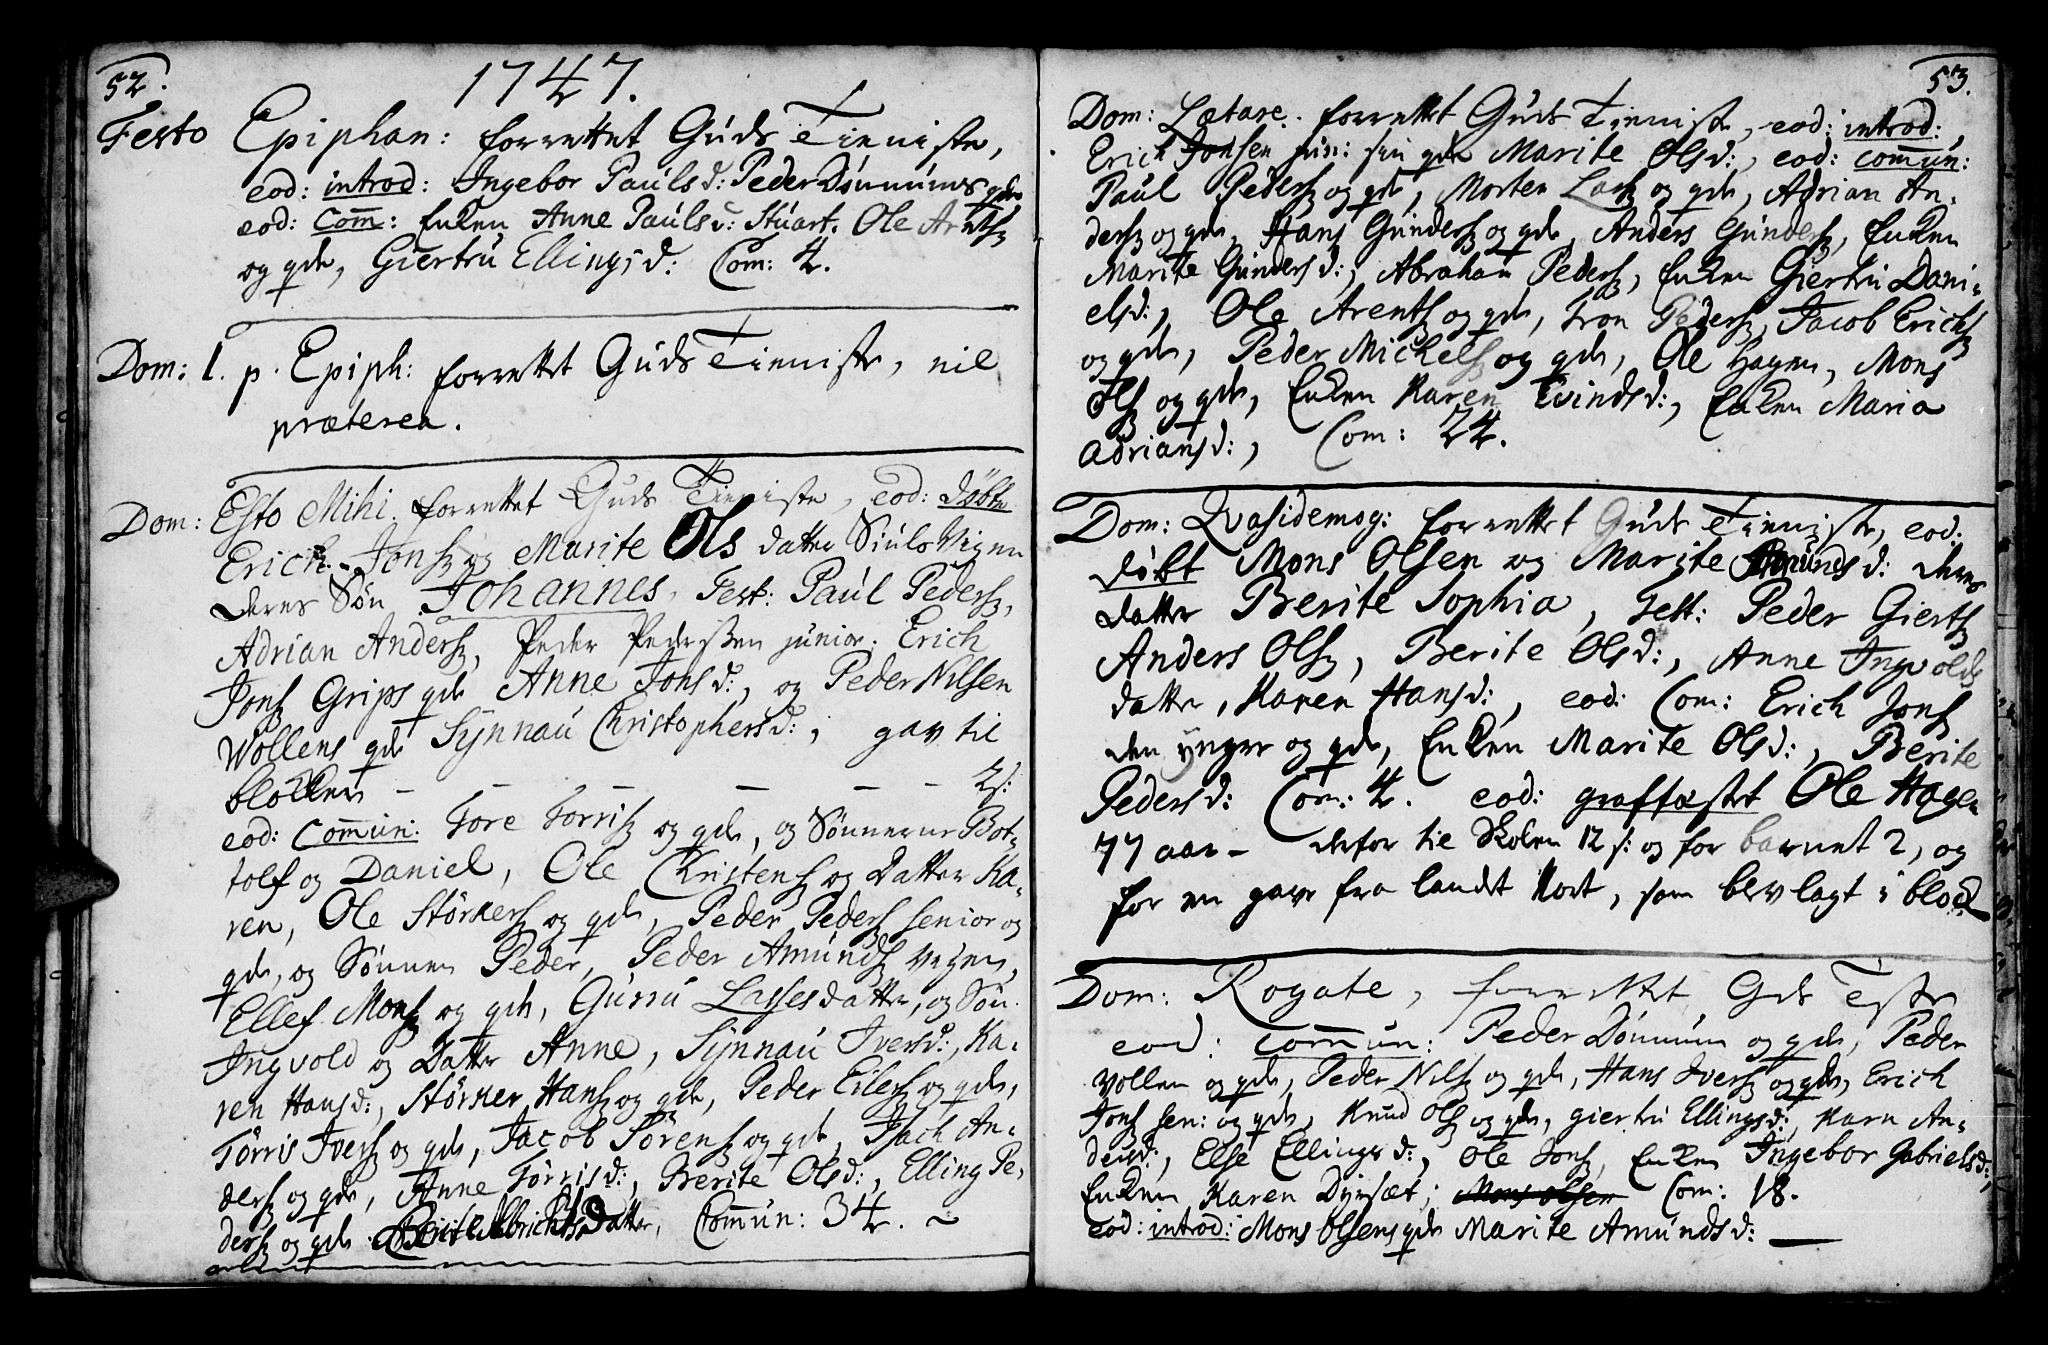 52.
1747.
Festo Epiphan: forrettet Guds Tieniste,
eod: introd: Ingebor Paulsd: Peder Dønnums qde
eod: Com: Enken Anne Paulsd: Stuart. Ole Arentsz
og qde, Giertru Ellingsd: Com: 4.
Dom: 1. p. Epiph: forrettet Guds Tieniste, nil
præterea.
Dom: Esto Mihi. forrettet Guds Tieniste, eod: døbte
Erich Jonsz og Marite Ols datter
deres Søn Johannes, Test: Paul Pedersz,
Adrian Andersz, Peder Pederssen junior. Erich
Jonsz Grips qde Anne Jonsd:, og Peder Nilsen
Wollens qde Synnau Christophersd:, gav til
blokken - - - - - - 2s:
eod: Commun: Tore Torrisz og qde, og Sønnerne Bot-
tolf og Daniel, Ole Christensz og Datter Ka-
ren, Ole Størkersz og qde, Peder Pedersz senior og
qde, og Sønnen Peder, Peder Amundsz Vegen,
Ellef Monsz og qde, Gurru Lassesdatter, og Søn
Ingvold og Datter Anne, Synnau Iversd:, Ka-
ren Hansd:, Størker Hansz og qde, Peder Eilersz og qde,
Tørris Iversz og qde, Jacob Sørensz og qde, Isach An-
dersz og qde, Anne Tørrisd:, Berite Olsd:, Elling Pe-
dersz og qde. Berite Albrichts Datter, Commun: 34. ~
53.
Dom: Lætare. forrettet Guds Tieniste, eod: introd:
Erich Jonsen jun: sin qde Marite Olsd:, eod: commun:
Paul Pedersz og qde, Morten Larsz og qde, Adrian An-
dersz og qde, Hans Gundersz og qde, Anders Gundersz, Enken
Marite Gundersd:, Abraham Pedersz, Enken Giertru Dani-
elsd:, Ole Arentsz og qde, Tron Pedersz, Jacob Erichsz
og qde, Peder Michelsz og qde, Ole Hagen, Mons
Olsz og qde, Enken Karen Evindsd:, Enken Maria
Adriansd:, Com: 24.
Dom: Qvasidemog: forrettet Guds Tieniste, eod:
døbt Mons Olsen og Marite Amundsd: deres
datter Berite Sophia, Test: Peder Giertsz
Anders Olsz, Berite Olsd:, Anne Ingvolds
datter, Karen Hansd:, eod: Com: Erich Jonsz
den yngre og qde, Enken Marite Olsd:, Berite
Pedersd: Com: 4. eod: graffæstet Ole Hagen
77 aar - derfor til Skolen 12 s: og for barnet 2, og
for en gave fra landet Kort, som blev lagt i block
Dom: Rogate, forrettet Gds Teste
eod: commun: Peder Dønnum og qde, Peder
Vollen og qde, Peder Nilsz og qde, Hans Iversz og qde, Erich
Jonsz sen: og qde, Knud Olsz og qde, giertru Ellingsd:, Karn An-
dersd:, Else Ellingsd:, Ole Jonsz, Enken Ingebor Gabrielsd:,
Enken Karen Dyrsæt, Mons Olsen Com: 18.
eod: introd: Mons Olsens qde Marite Amundsd: